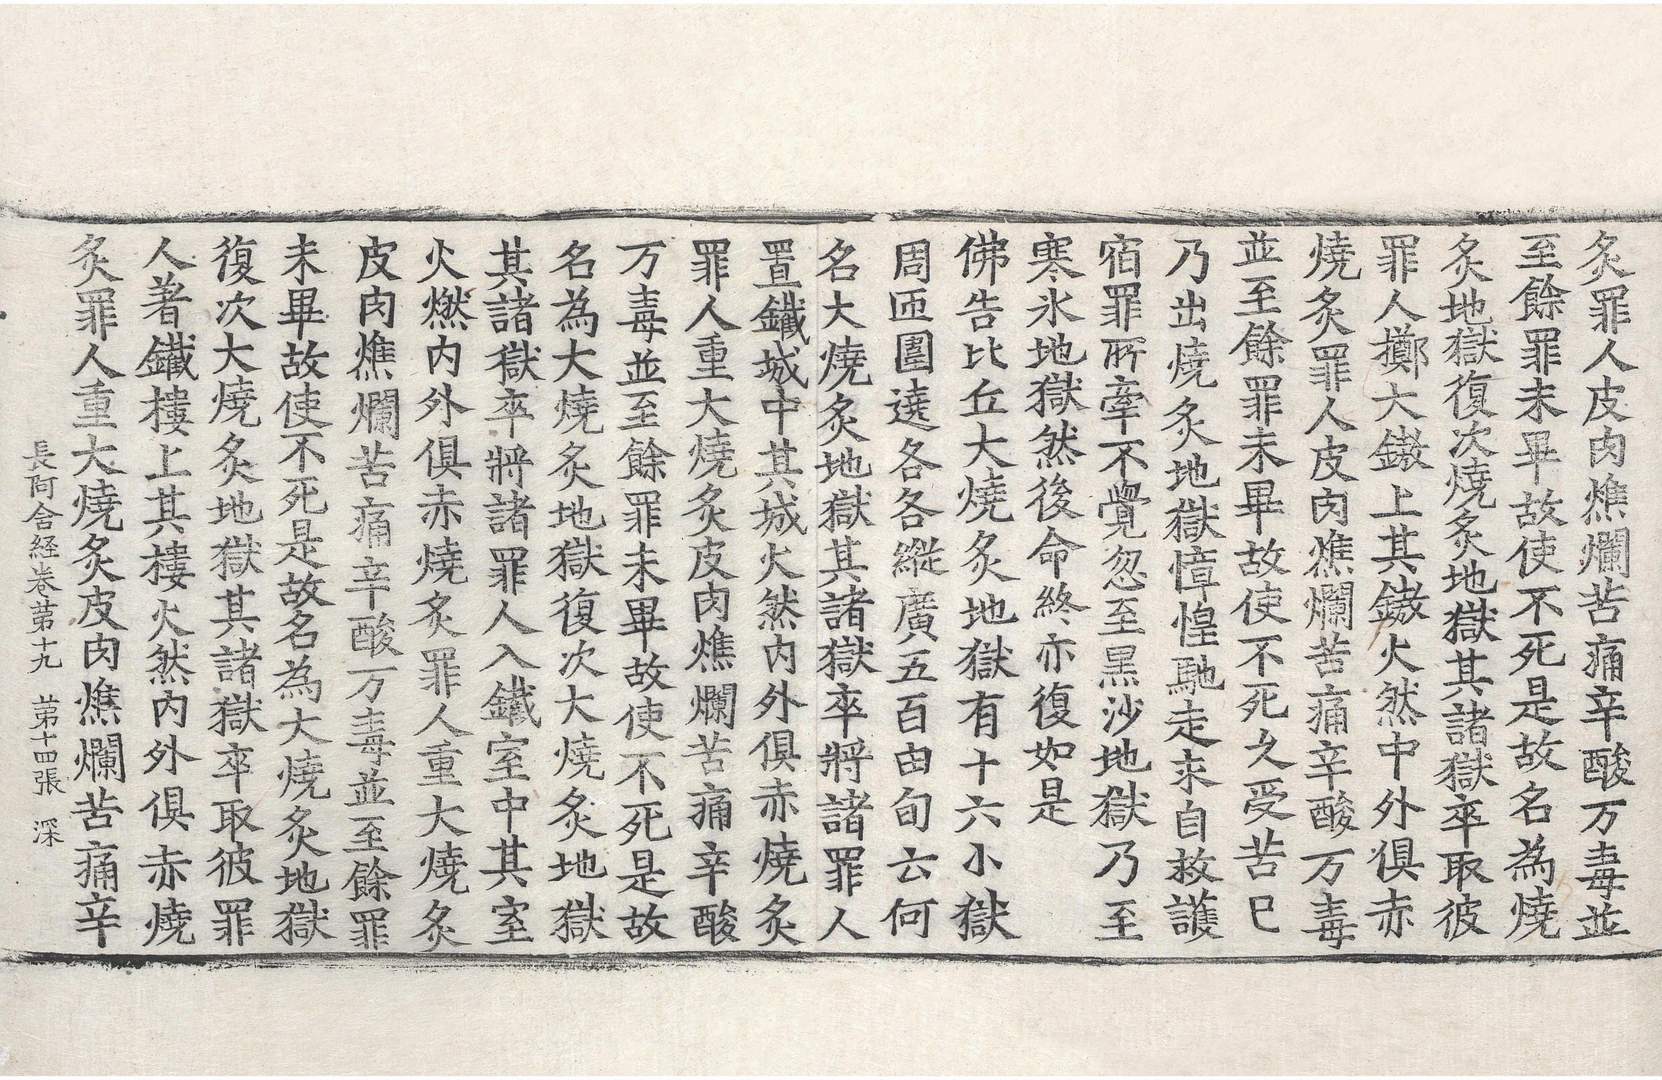 炙罪人皮肉燋爛苦痛辛酸万毒並
至餘罪未畢故使不死是故名為燒
炙地獄復次燒炙地獄其諸獄卒取彼
罪人擲大鏾上其鏾火然中外俱赤
燒炙罪人皮肉燋爛苦痛辛酸万毒
並至餘罪未畢故使不死久受苦已
乃出燒炙地獄慞惶馳走求自救護
宿罪所牽不覺忽至黑沙地獄乃至
寒氷地獄然後命終亦復如是
佛告比丘大燒炙地獄有十六小獄
周匝圍遶各各縱廣五百由旬云何
名大燒炙地獄其諸獄卒將諸罪人
置鐵城中其城火然內外俱赤燒炙
罪人重大燒炙皮肉燋爛苦痛辛酸
万毒並至餘罪未畢故使不死是故
名為大燒炙地獄復次大燒炙地獄
其諸獄卒將諸罪人入鐵室中其室
火燃內外俱赤燒炙罪人重大燒炙
皮肉燋爛苦痛辛酸万毒並至餘罪
未畢故使不死是故名為大燒炙地獄
復次大燒炙地獄其諸獄卒取彼罪
人著鐵樓上其樓火然內外俱赤燒
炙罪人重大燒炙皮肉燋爛苦痛辛
長阿含経卷苐十九 苐十四張 深